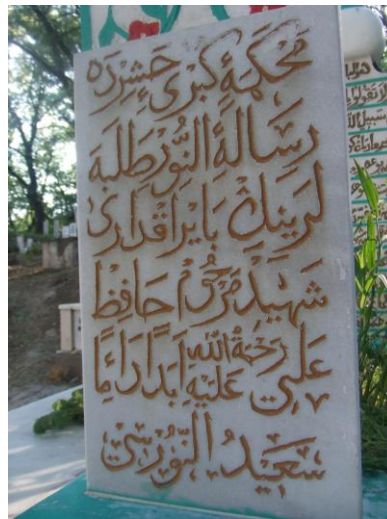 محكمۀ كبرى حشرده
رسالۀ النور طلبه
لرينڭ بايراقدارى
شهيد مرحوم حافظ
على رحمة الله عليه ابدا دائما
سعيد النورسى